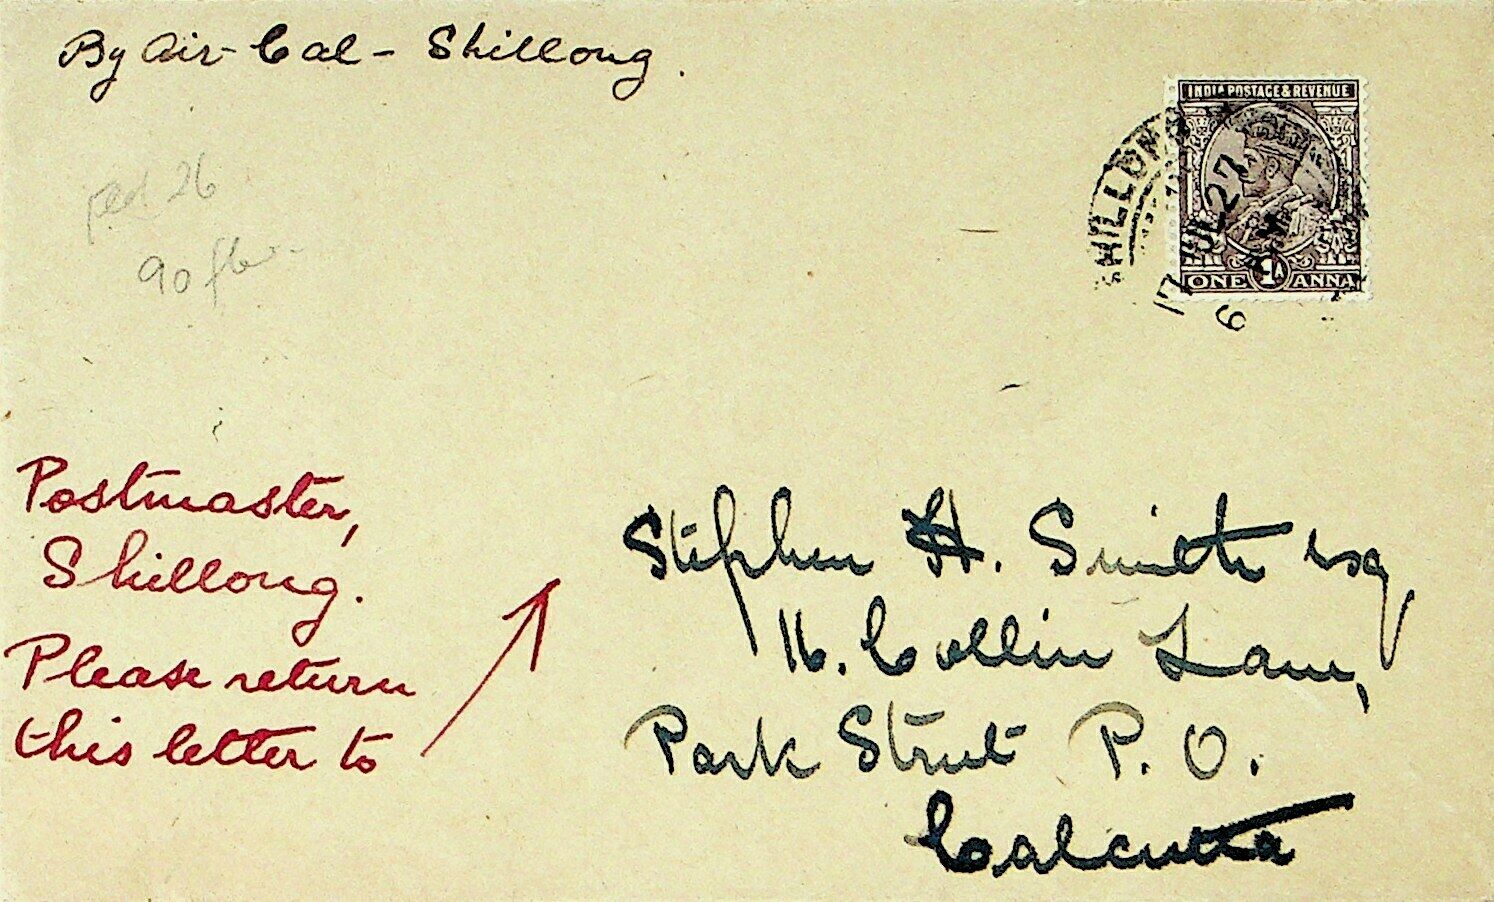 By Air - Cal - Shillong.
INDIA POSTAGE & REVENUE
SHILLONG
17 JUL 27
6
ONE 1A ANNA
26
90
Postmaster,
Shillong.
Please return
this letter to
Stephen H. Smith Esq
16. Collin Lane,
Park Street P. O.
Calcutta